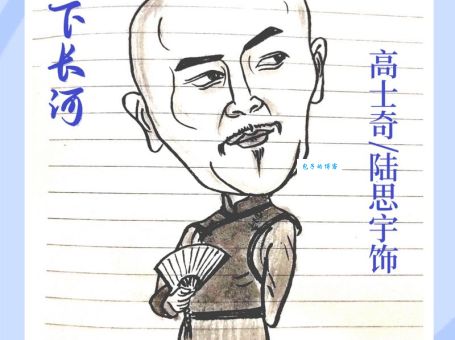 下长河
高士奇/陆思宇饰
包子的博客